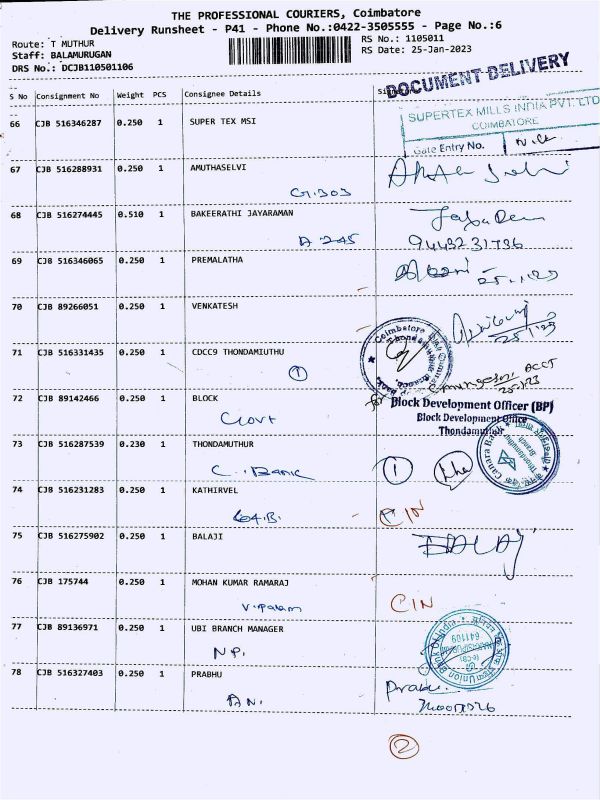 THE PROFESSIONAL COURIERS, Coimbatore
Delivery Runsheet - P41 - Phone No.:0422-3505555 - Page No.:6
Route: T MUTHUR
RS No.: 1105011
Staff: BALAMURUGAN
RS Date: 25-Jan-2023
DRS No.: DCJB110501106
DOCUMENT DELIVERY
S No Consignment No Weight PCS Consignee Details
SUPERTEX MILLS INDIA PVT. LTD
COIMBATORE
Gate Entry No.
66 CJB 516346287 0.250 1 SUPER TEX MSI
67 CJB 516288931 0.250 1 AMUTHASELVI
G.303
68 CJB 516274445 0.510 1 BAKEERATHI JAYARAMAN
A 245
9443231736
69 CJB 516346065 0.250 1 PREMALATHA
25.1.23
70 CJB 89266051 0.250 1 VENKATESH
25.1.23
71 CJB 516331435 0.250 1 CDCC9 THONDAMIUTHU
1
25.1.23
72 CJB 89142466 0.250 1 BLOCK
Govt
Block Development Officer (BP)
Block Development Office
Thondamuthur
73 CJB 516287539 0.230 1 THONDAMUTHUR
C. Bank
1
Canara Bank
Thondamuthur
Branch
74 CJB 516231283 0.250 1 KATHIRVEL
CIN
75 CJB 516275902 0.250 1 BALAJI
BALAJ
76 CJB 175744 0.250 1 MOHAN KUMAR RAMARAJ
V. Palam
CIN
77 CJB 89136971 0.250 1 UBI BRANCH MANAGER
NP.
Union Bank of India
641109
78 CJB 516327403 0.250 1 PRABHU
AN.
Prabu
2